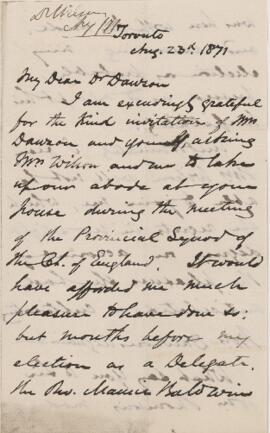 Dr Wilson
Aug 1871
Toronto
Aug. 23rd 1871
My Dear Dr Dawson
I am exceedingly grateful
for the kind invitation of Mrs
Dawson and yourself, asking
Mrs Wilson and me to take
up our abode at your
house during the meeting
of the Provincial Synod of
the Ch. of England. It would
have afforded me much
pleasure to have done so:
but months before my
election as a Delegate,
the Rev. Maurice Baldwin